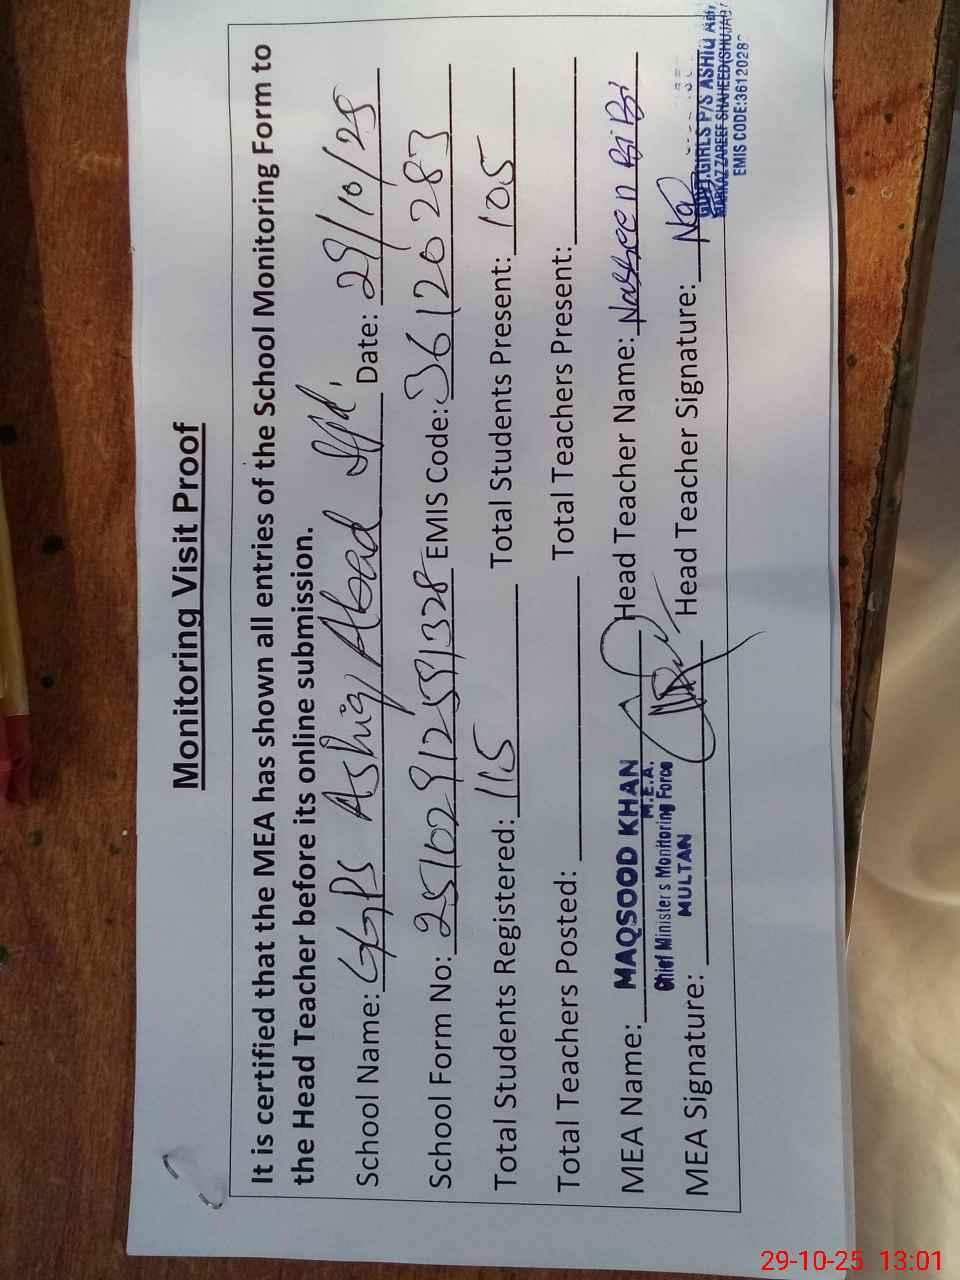 Monitoring Visit Proof
It is certified that the MEA has shown all entries of the School Monitoring Form to
the Head Teacher before its online submission.
School Name: GGPS Ashiq Abad Date: 29/10/25
School Form No: EMIS Code: 36120283
Total Students Registered: 115 Total Students Present: 105
Total Teachers Posted: Total Teachers Present:
MEA Name: MAQSOOD KHAN Head Teacher Name: Nasreen BiBi
M.E.A.
Chief Ministers Monitoring Force
MULTAN
MEA Signature: Head Teacher Signature:
GOVT.GIRLS P/S ASHIQ
MARKAZ ZAREEF SHAHEED(SHUJA
EMIS CODE:3612028
29-10-25 13:01